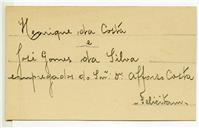 Henrique da Costa
e
José Gomes da Silva
empregados do Snr. Dr. Affonso Costa
Felicitam